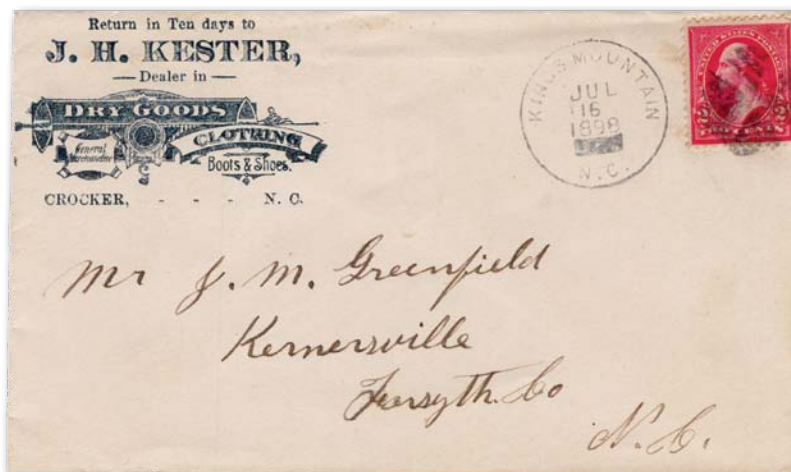 Return in Ten days to
J. H. KESTER,
Dealer in
DRY GOODS
CLOTHING
General
Merchandise
Boots & Shoes.
CROCKER, - - - N. C.
KINGS MOUNTAIN
JUL
16
1898
N.C.
UNITED STATES POSTAGE
Mr J. M. Greenfield
Kernersville
Forsyth. Co
N. C.